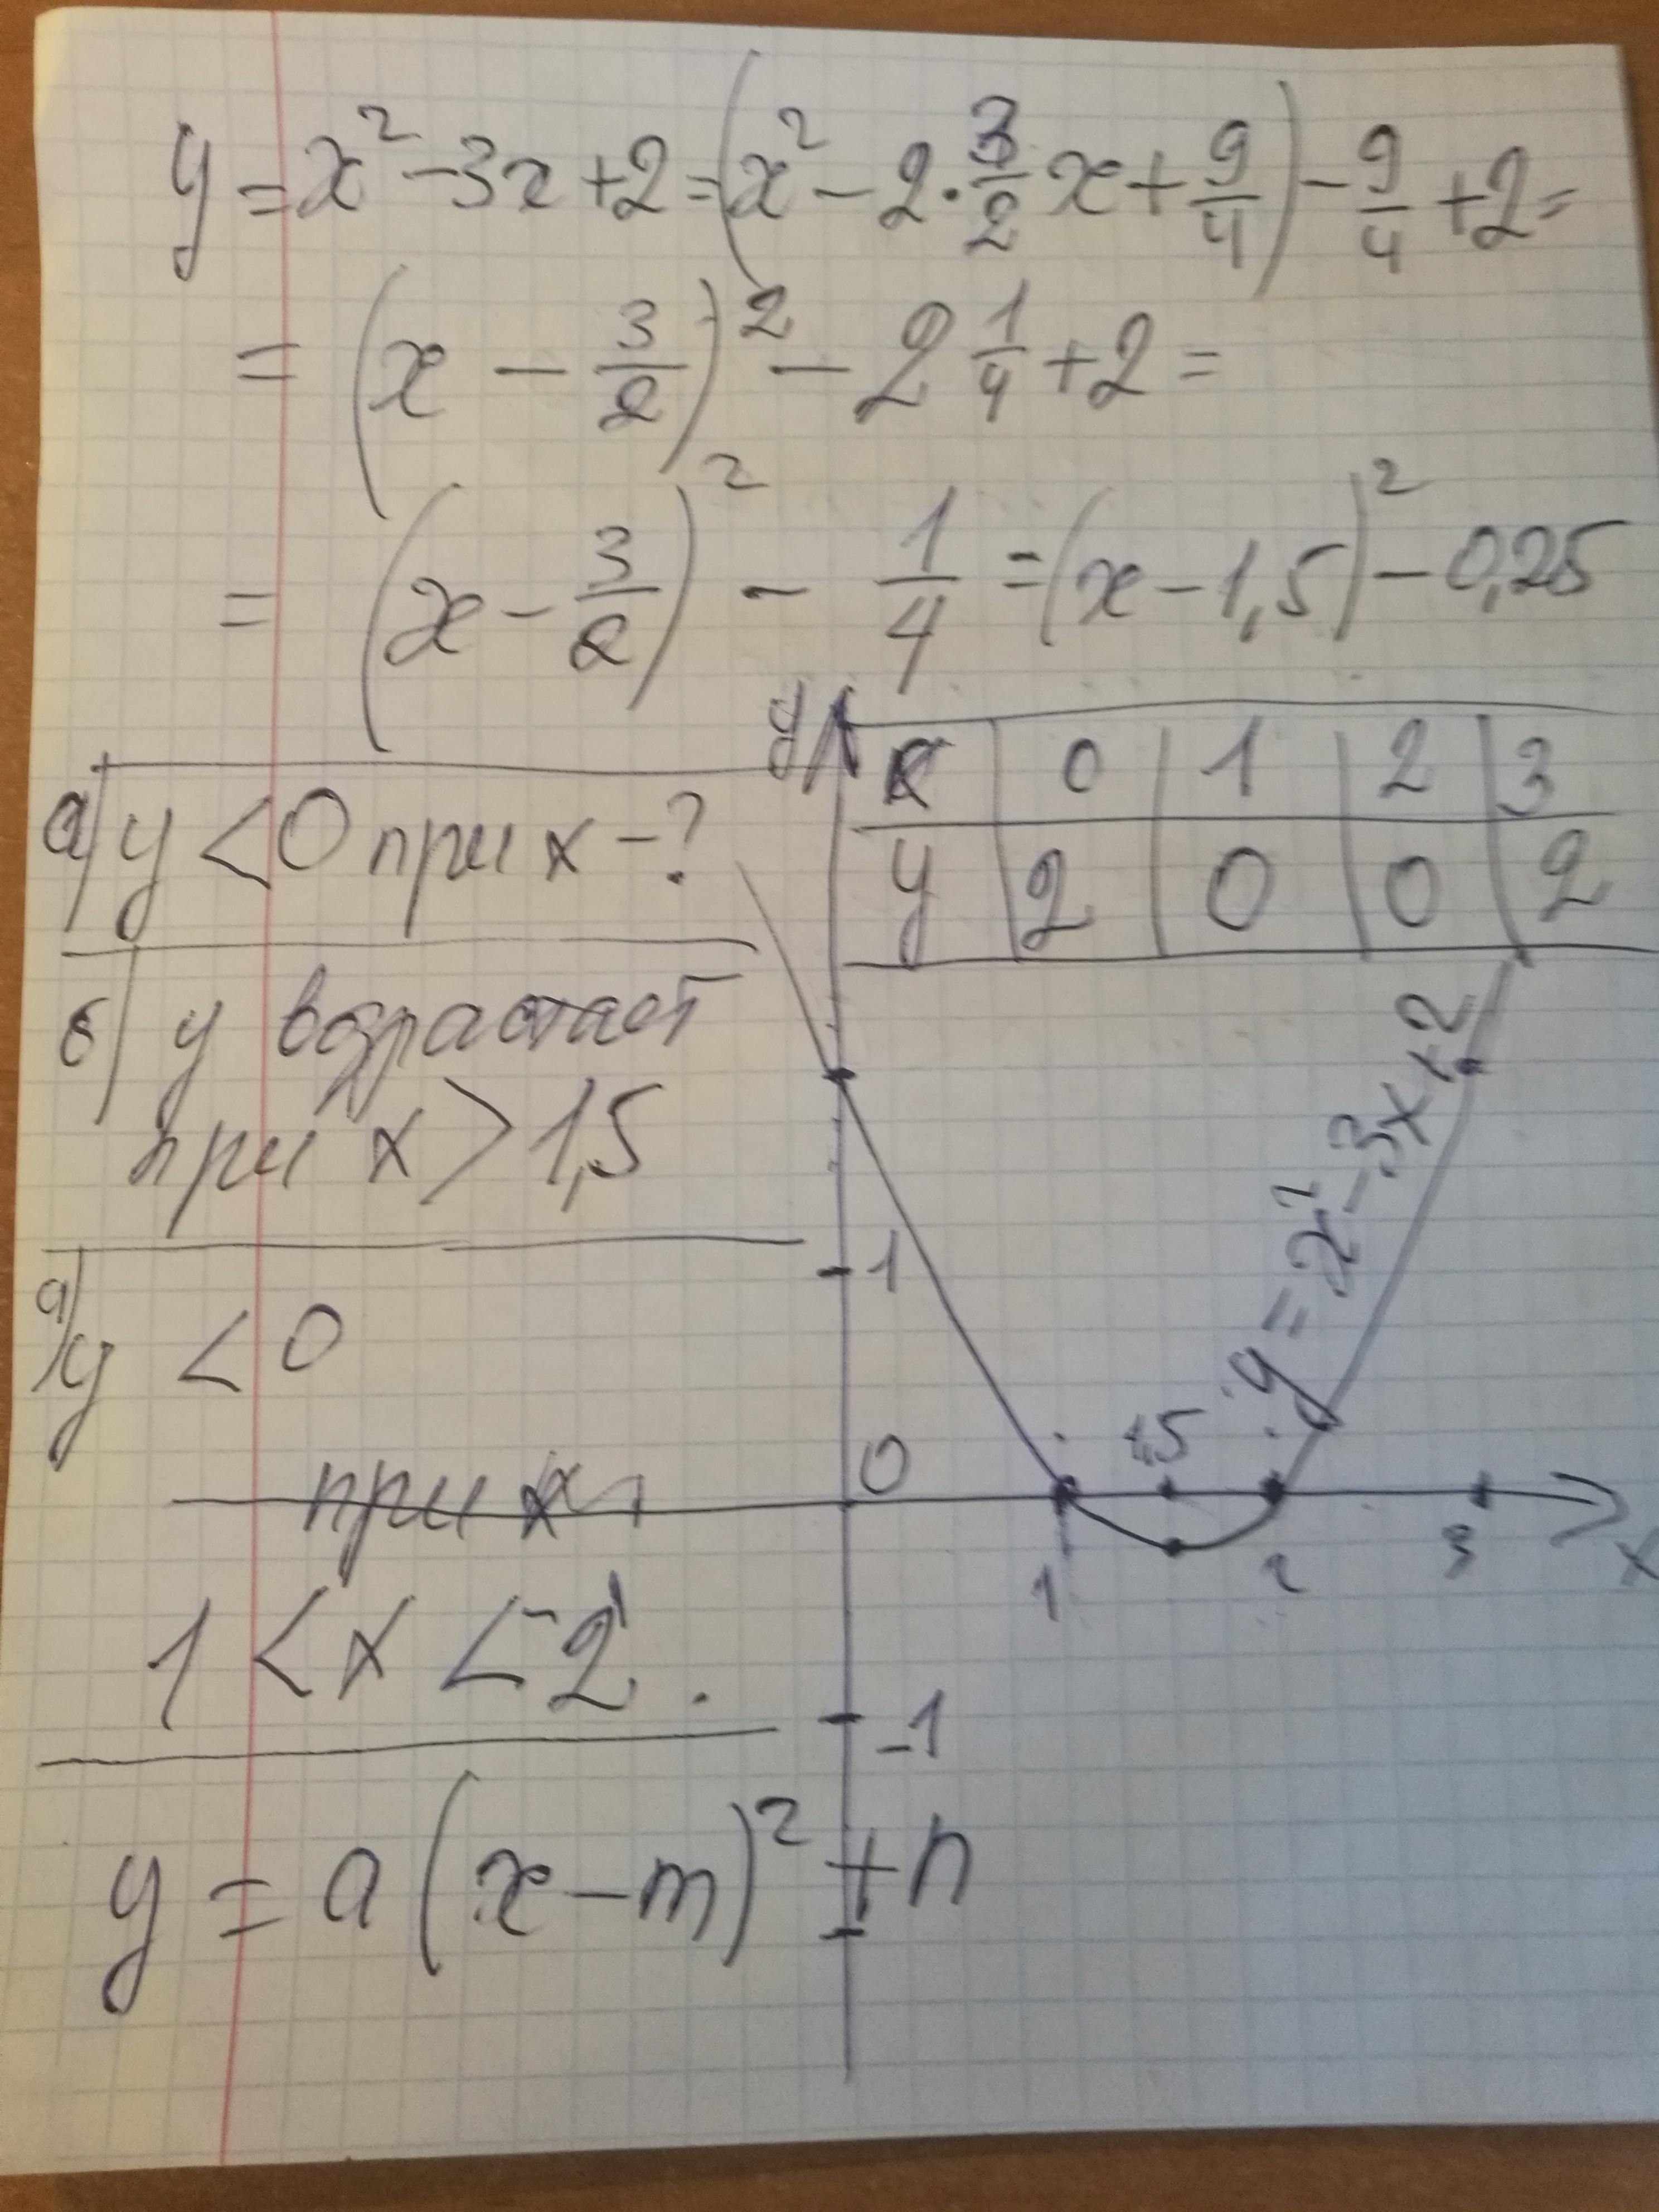 y = x² - 3x + 2 = (x² - 2·3/2 x + 9/4) - 9/4 + 2 =
= (x - 3/2)² - 2 1/4 + 2 =
= (x - 3/2)² - 1/4 = (x - 1,5)² - 0,25
y
x 0 1 2 3
y 2 0 0 2
а) y < 0 при x - ?
б) y возрастает
при x > 1,5
а) y < 0
при x
1 < x < 2.
y = a(x - m)² + n
y = x² - 3x + 2
1
0
1,5
1 2 3
x
-1